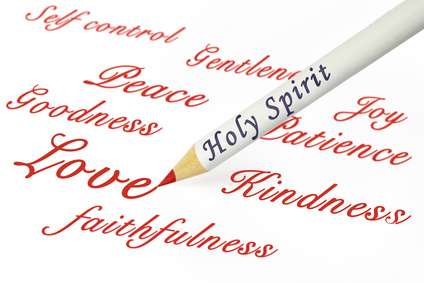 Self control
Gentlen
Peace
Holy Spirit
Joy
Goodness
Patience
Love
Kindness
faithfulness